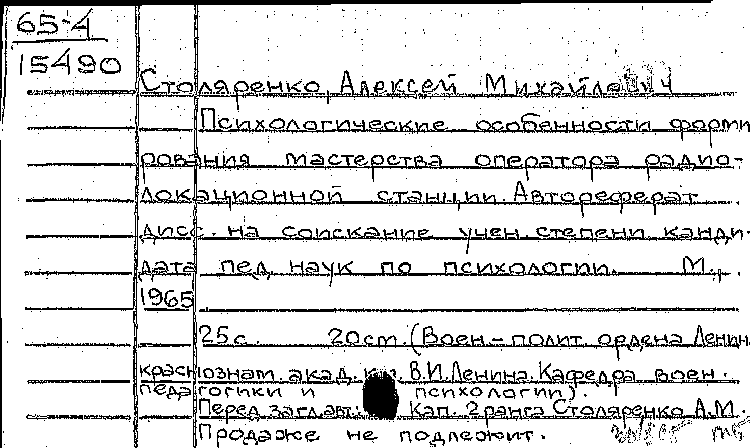 65-4
15490
Столяренко, Алексей Михайлович
Психологические особенности форми
рования мастерства оператора радио-
локационной станции. Автореферат
дисс. на соискание учен. степени канди-
дата пед. наук по психологии. М.,
1965
25с. 20см. (Воен.-полит. ордена Ленин.
краснознам. акад. им. В.И.Ленина. Кафедра воен.
педагогики и психологии).
Перед загл. авт.: Кап. 2 ранга Столяренко А.М.
Продаже не подлежит.